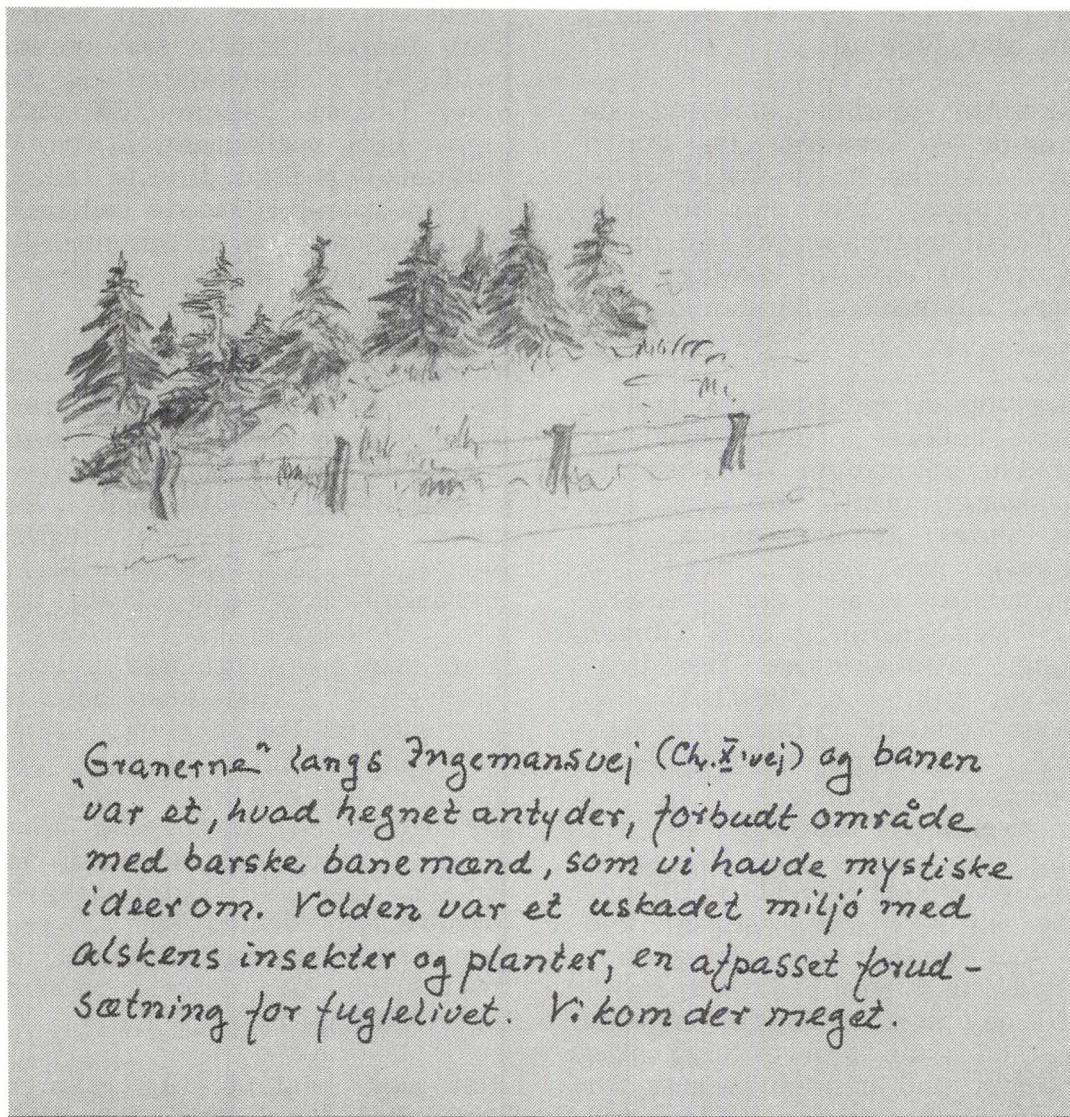 „Granerne“ langs Ingemansvej (Ch. X's vej) og banen
var et, hvad hegnet antyder, forbudt område
med barske banemænd, som vi havde mystiske
ideer om. Volden var et uskadet miljó med
alskens insekter og planter, en afpasset forud-
sætning for fuglelivet. Vi kom der meget.